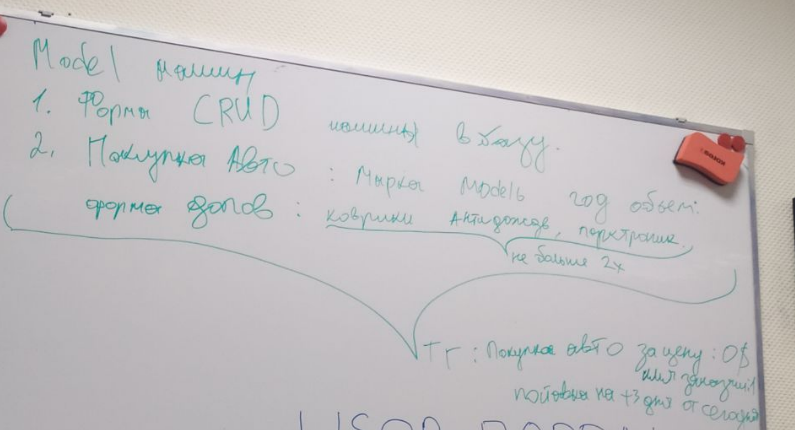 Model машин
1. Формы CRUD машины в базу.
2. Покупка Авто : Марка Modelь год объем:
форма допов : коврики Антидождь, парктроник
не больше 2х
ТГ : Покупка авто за цену : 0$
на +3 дня от сегодня